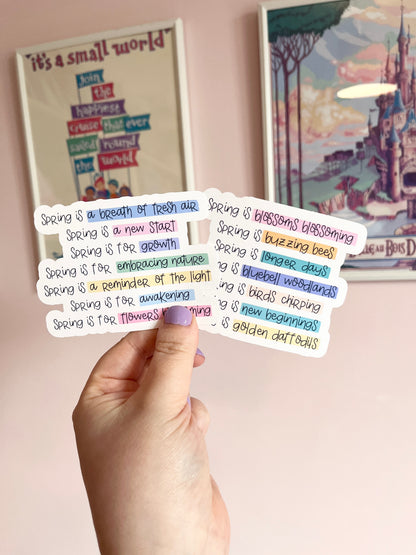 it's a small world
join
the
happiest
cruise that ever
sailed 'round
the world
spring is a breath of fresh air
spring is a new start
spring is for growth
spring is for embracing nature
spring is a reminder of the light
spring is for awakening
spring is for flowers
spring is blossoms blossoming
spring is buzzing bees
spring is longer days
spring is bluebell woodlands
spring is birds chirping
spring is new beginnings
is golden daffodils